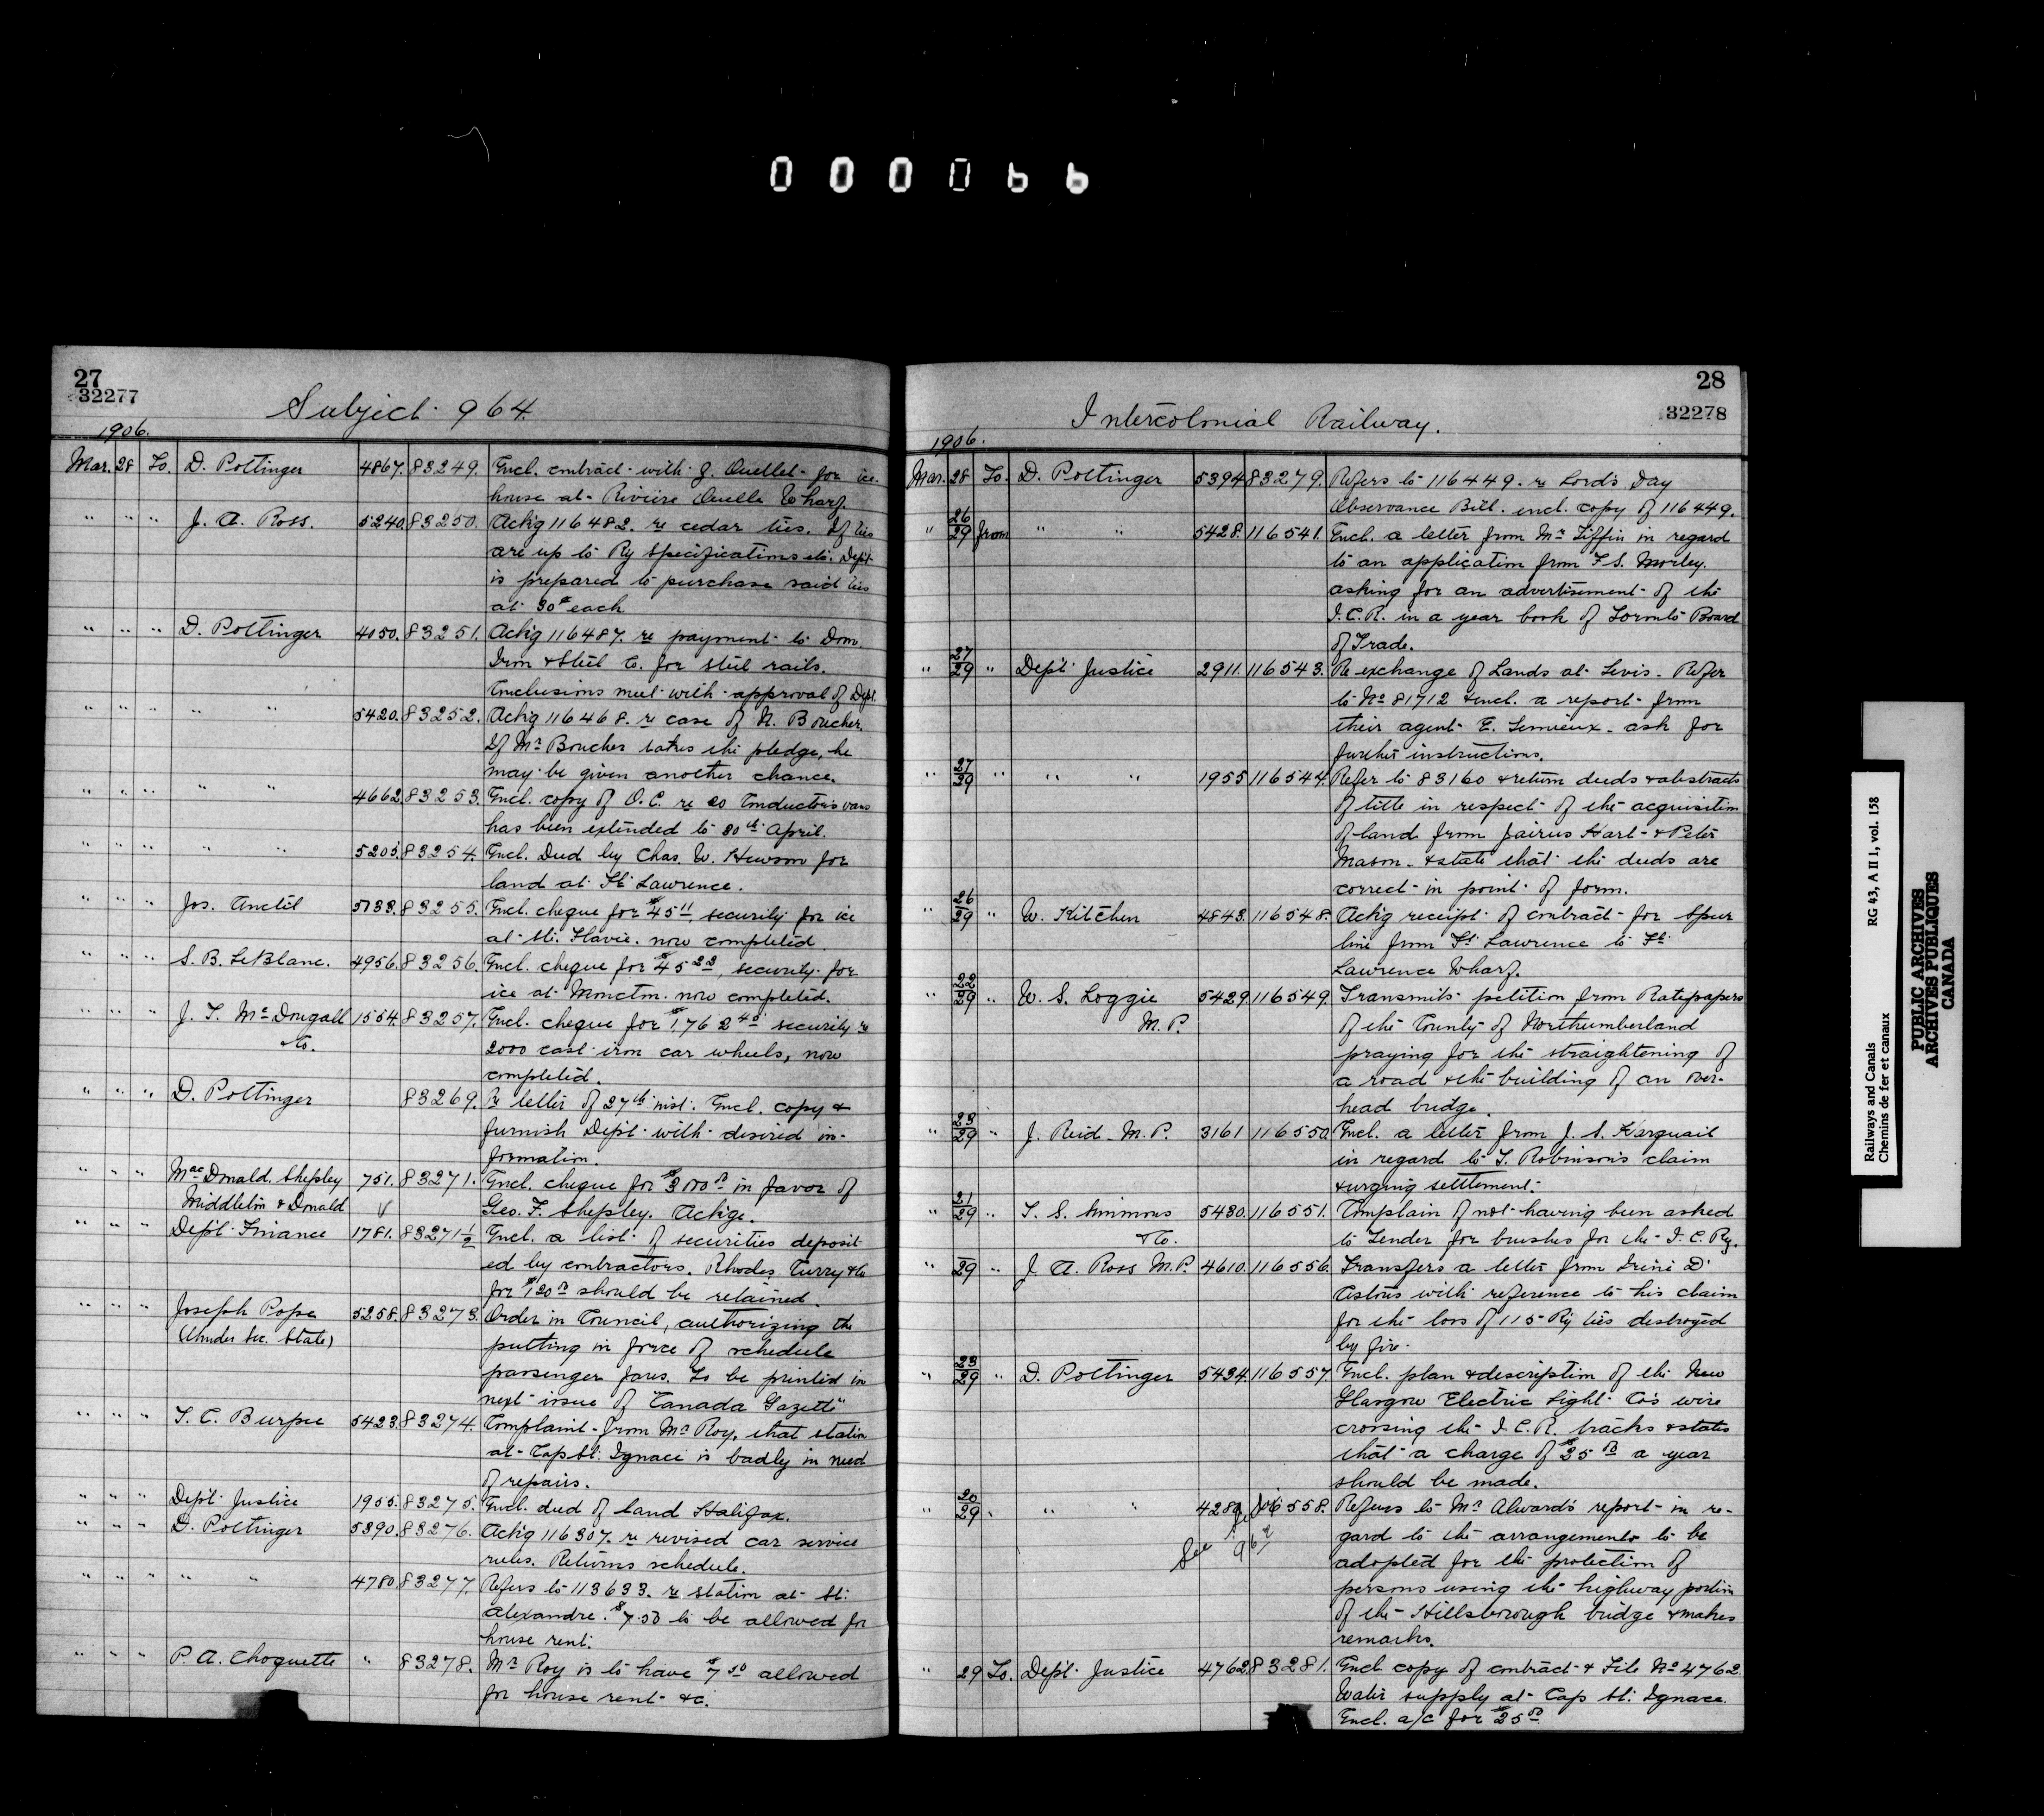 000066
27
32277
Subject 964.
1906.
Mar. 28 To. D. Pottinger 4867. 83249. Encl. contract with J. Ouellet for ice
house at Rivière Ouelle Wharf.
" " " J. A. Ross. 5240. 83250. Ackg 116482. re cedar ties. If ties
are up to Ry specifications etc. Dept
is prepared to purchase said ties
at 30¢ each
" " " D. Pottinger 4050. 83251. Ackg 116487. re payment to Dom.
Iron & Steel Co. for steel rails.
Conclusions meet with approval of Dept.
" " " " " 5420. 83252. Ackg 116468. re case of N. Boucher.
If Mr Boucher takes the pledge, he
may be given another chance.
" " " " " 4662. 83253. Encl. copy of O.C. re 20 Conductors vans
has been extended to 30th April.
" " " " " 5205. 83254. Encl. Deed by Chas. W. Hewson for
land at Ft. Lawrence.
" " " Jos. Anctil 5133. 83255. Encl. cheque for $45 11, security for ice
at St. Flavie. now completed.
" " " S. B. LeBlanc. 4956. 83256. Encl. cheque for $45 23, security for
ice at Moncton. now completed.
" " " J. T. McDougall 1554. 83257. Encl. cheque for $1762 40 security re
& Co. 2000 cast iron car wheels, now
completed.
" " " D. Pottinger 83269. Re letter of 27th inst. Encl. copy &
furnish Dept with desired in-
formation.
" " " MacDonald, Shepley 751. 83271. Encl. cheque for $300 00 in favor of
Middleton & Donald Geo. F. Shepley. Ackge.
" " " Dept Finance 1781. 83271½ Encl. a list of securities deposit
ed by contractors. Rhodes, Curry & Co
for $120 00 should be retained.
" " " Joseph Pope 5258. 83273. Order in Council, authorizing the
(Under Sec. State) putting in force of schedule
passenger fares. To be printed in
next issue of "Canada Gazette"
" " " T. C. Burpee 5423. 83274. Complaint from Mr Roy, that station
at Cap St. Ignace is badly in need
of repairs.
" " " Dept Justice 1955. 83275. Encl. deed of land Halifax.
" " " D. Pottinger 5390. 83276. Ackg 116307. re revised car service
rules. Returns schedule.
" " " " " 4780. 83277. Refers to 113633. re station at St.
Alexandre. $7.50 to be allowed for
house rent.
" " " P. A. Choquette " 83278. Mr Roy is to have $7 50 allowed
for house rent &c.
28
32278
Intercolonial Railway.
1906.
Mar. 28 To. D. Pottinger 5394 83279. Refers to 116449. re Lord's Day
Observance Bill. encl. copy of 116449.
" 26/29 from " " 5428. 116541. Encl. a letter from Mr Tiffin in regard
to an application from F. S. Morley.
asking for an advertisement of the
I.C.R. in a year book of Toronto Board
of Trade.
" 27/29 " Dept Justice 2911. 116543. Re exchange of Lands at Levis. Refer
to No 81712 & encl. a report from
their agent E. Lemieux. ask for
further instructions.
" 27/29 " " " 1955 116544. Refer to 83160 & return deeds & abstracts
of title in respect of the acquisition
of land from Jairus Hart & Peter
Mason. & state that the deeds are
correct in point of form.
" 26/29 " W. Kitchen 4843. 116548. Ackg receipt of contract for Spur
line from Ft. Lawrence to Ft.
Lawrence Wharf.
" 22/29 " W. S. Loggie 5429. 116549. Transmits petition from Ratepayers
M.P. of the County of Northumberland
praying for the straightening of
a road & the building of an over-
head bridge.
" 23/29 " J. Reid M.P. 3161 116550. Encl. a letter from J. S. Harquail
in regard to T. Robinson's claim
& urging settlement.
" 21/29 " T. S. Simmons 5430. 116551. Complain of not having been asked
& Co. to Tender for brushes for the I.C. Ry.
" 29 " J. A. Ross M.P. 4610. 116556. Transfers a letter from Irené D'
Astous with reference to his claim
for the loss of 115 Ry ties destroyed
by fire.
" 23/29 " D. Pottinger 5434. 116557. Encl. plan & description of the New
Glasgow Electric Light Co's wire
crossing the I.C.R. tracks & states
that a charge of $25 00 a year
should be made.
" 20/29 " " 116558. Refers to Mr Alward's report in re-
See gard to the arrangements to be
adopted for the protection of
persons using the highway portion
of the Hillsborough bridge & makes
remarks.
" 29 To. Dept Justice 4762. 83281. Encl copy of contract & File No 4762.
Water supply at Cap St. Ignace.
Encl. a/c for $25 00
Railways and Canals RG 43, A II 1, vol. 158
Chemins de fer et canaux
PUBLIC ARCHIVES
ARCHIVES PUBLIQUES
CANADA